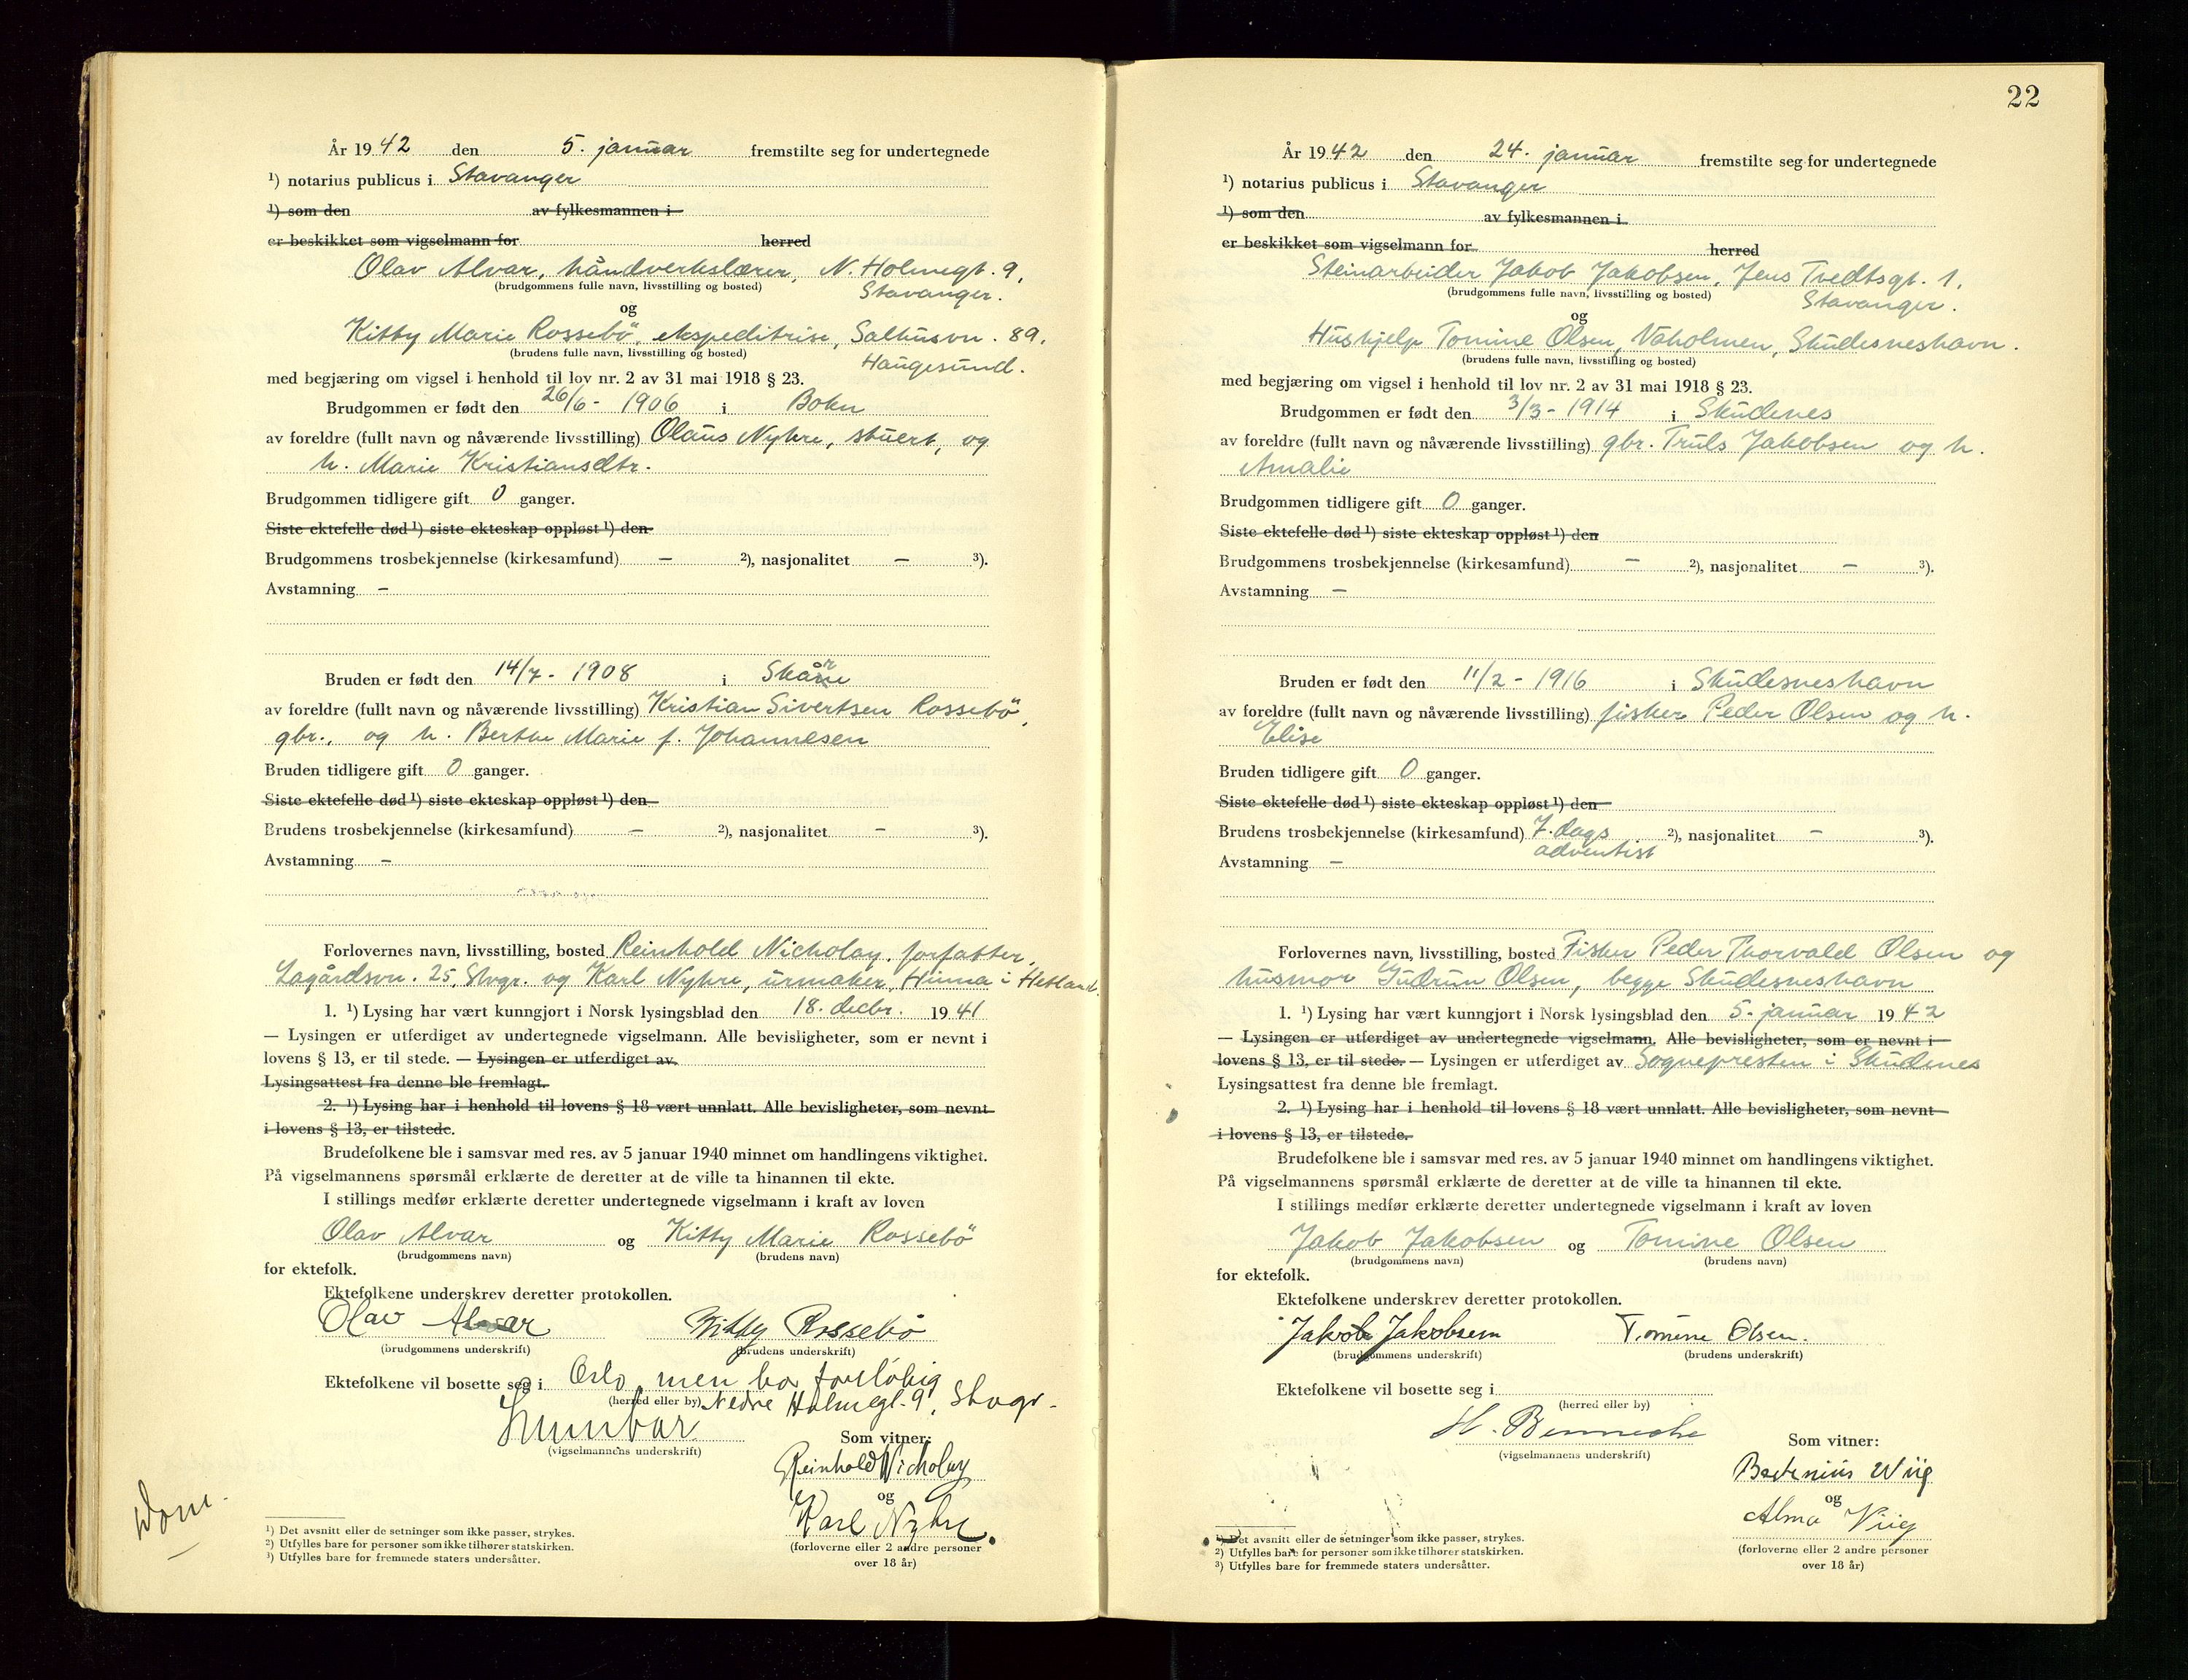 År 1942 den 5. januar fremstilte seg for undertegnede
¹) notarius publicus i Stavanger
¹) som den av fylkesmannen i
er beskikket som vigselmann for herred
Olav Alvar, håndverkslærer, N. Holmegt. 9,
(brudgommens fulle navn, livsstilling og bosted) Stavanger.
og
Kitty Marie Rossebö, ekspeditrise, Salhusvn. 89,
(brudens fulle navn, livsstilling og bosted) Haugesund.
med begjæring om vigsel i henhold til lov nr. 2 av 31 mai 1918 § 23.
Brudgommen er født den 26/6 - 1906 i Bokn
av foreldre (fullt navn og nåværende livsstilling) Olaus Nyhre, stuert, og
h. Marie Kristiansdtr.
Brudgommen tidligere gift 0 ganger.
Siste ektefelle død ¹) siste ekteskap oppløst ¹) den
Brudgommens trosbekjennelse (kirkesamfund) — ²), nasjonalitet — ³).
Avstamning —
Bruden er født den 14/7 - 1908 i Skåre
av foreldre (fullt navn og nåværende livsstilling) Kristian Sivertsen Rossebö,
gbr., og h. Berthe Marie f. Johannesen
Bruden tidligere gift 0 ganger.
Siste ektefelle død ¹) siste ekteskap oppløst ¹) den
Brudens trosbekjennelse (kirkesamfund) — ²), nasjonalitet — ³).
Avstamning —
Forlovernes navn, livsstilling, bosted Reinhold Nicholay, forfatter,
Lagårdsvn. 25, Stvgr. og Karl Nyhre, urmaker, Hinna i Hetland.
1. ¹) Lysing har vært kunngjort i Norsk lysingsblad den 18. decbr. 1941
— Lysingen er utferdiget av undertegnede vigselmann. Alle bevisligheter, som er nevnt i
lovens § 13, er til stede. — Lysingen er utferdiget av
Lysingsattest fra denne ble fremlagt.
2. ¹) Lysing har i henhold til lovens § 18 vært unnlatt. Alle bevisligheter, som nevnt
i lovens § 13, er tilstede.
Brudefolkene ble i samsvar med res. av 5 januar 1940 minnet om handlingens viktighet.
På vigselmannens spørsmål erklærte de deretter at de ville ta hinannen til ekte.
I stillings medfør erklærte deretter undertegnede vigselmann i kraft av loven
Olav Alvar og Kitty Marie Rossebö
(brudgommens navn) (brudens navn)
for ektefolk.
Ektefolkene underskrev deretter protokollen.
Olav Alvar Kitty Rossebø
(brudgommens underskrift) (brudens underskrift)
Ektefolkene vil bosette seg i Oslo, men bor foreløbig
(herred eller by) Nedre Holmegt. 9, Stvgr.
(vigselmannens underskrift) Som vitner:
Reinhold Nicholay
og
Karl Nyhre.
(forloverne eller 2 andre personer
over 18 år)
¹) Det avsnitt eller de setninger som ikke passer, strykes.
²) Utfylles bare for personer som ikke tilhører statskirken.
³) Utfylles bare for fremmede staters undersåtter.
22
År 1942 den 24. januar fremstilte seg for undertegnede
¹) notarius publicus i Stavanger
¹) som den av fylkesmannen i
er beskikket som vigselmann for herred
Steinarbeider Jakob Jakobsen, Jens Tvedtsgt. 1,
(brudgommens fulle navn, livsstilling og bosted) Stavanger.
og
Hushjelp Tomine Olsen, Vaholmen, Skudesneshavn.
(brudens fulle navn, livsstilling og bosted)
med begjæring om vigsel i henhold til lov nr. 2 av 31 mai 1918 § 23.
Brudgommen er født den 3/3 - 1914 i Skudenes
av foreldre (fullt navn og nåværende livsstilling) gbr. Truls Jakobsen og h.
Amalie
Brudgommen tidligere gift 0 ganger.
Siste ektefelle død ¹) siste ekteskap oppløst ¹) den
Brudgommens trosbekjennelse (kirkesamfund) — ²), nasjonalitet — ³).
Avstamning —
Bruden er født den 11/2 - 1916 i Skudesneshavn
av foreldre (fullt navn og nåværende livsstilling) fisker Peder Olsen og h.
Elise
Bruden tidligere gift 0 ganger.
Siste ektefelle død ¹) siste ekteskap oppløst ¹) den
Brudens trosbekjennelse (kirkesamfund) 7. dags ²), nasjonalitet — ³).
adventist
Avstamning —
Forlovernes navn, livsstilling, bosted Fisker Peder Thorvald Olsen og
husmor Gudrun Olsen, begge Skudesneshavn
1. ¹) Lysing har vært kunngjort i Norsk lysingsblad den 5. januar 1942
— Lysingen er utferdiget av undertegnede vigselmann. Alle bevisligheter, som er nevnt i
lovens § 13, er til stede. — Lysingen er utferdiget av Sognepresten i Skudenes
Lysingsattest fra denne ble fremlagt.
2. ¹) Lysing har i henhold til lovens § 18 vært unnlatt. Alle bevisligheter, som nevnt
i lovens § 13, er tilstede.
Brudefolkene ble i samsvar med res. av 5 januar 1940 minnet om handlingens viktighet.
På vigselmannens spørsmål erklærte de deretter at de ville ta hinannen til ekte.
I stillings medfør erklærte deretter undertegnede vigselmann i kraft av loven
Jakob Jakobsen og Tomine Olsen
(brudgommens navn) (brudens navn)
for ektefolk.
Ektefolkene underskrev deretter protokollen.
Jakob Jakobsen Tomine Olsen.
(brudgommens underskrift) (brudens underskrift)
Ektefolkene vil bosette seg i
(herred eller by)
H. Benneche
(vigselmannens underskrift) Som vitner:
Wiig
og
Alma Viig
(forloverne eller 2 andre personer
over 18 år)
¹) Det avsnitt eller de setninger som ikke passer, strykes.
²) Utfylles bare for personer som ikke tilhører statskirken.
³) Utfylles bare for fremmede staters undersåtter.